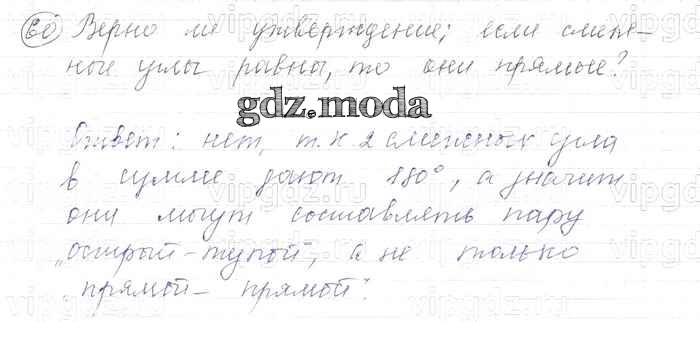 60 Верно ли утверждение; если смеж-
ные углы равны, то они прямые?
gdz.moda
Ответ: нет, т.к 2 смежных угла
в сумме дают 180°, а значит
они могут составлять пару
„острый-тупой", а не только
„прямой- прямой".